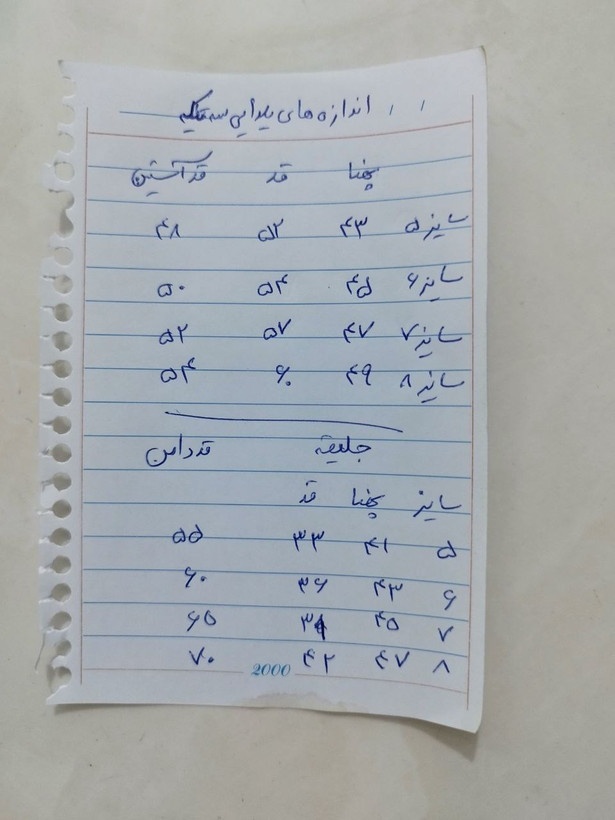 اندازه های یلدایی سه تیکه
پهنا قد قد آستین
سایز ۵ ۴۳ ۵۲ ۴۸
سایز ۶ ۴۵ ۵۴ ۵۰
سایز ۷ ۴۷ ۵۷ ۵۲
سایز ۸ ۴۹ ۶۰ ۵۴
جلیقه قد دامن
سایز پهنا قد
۵ ۴۱ ۳۳ ۵۵
۶ ۴۳ ۳۶ ۶۰
۷ ۴۵ ۶۵
۸ ۴۷ ۴۲ ۷۰
2000